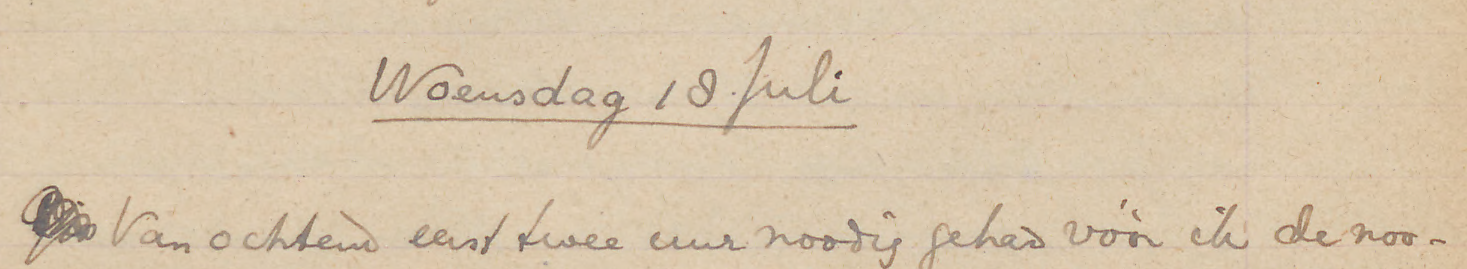 Woensdag 18 Juli
Van ochtend eerst twee uur noodig gehad vóór ik de noo-